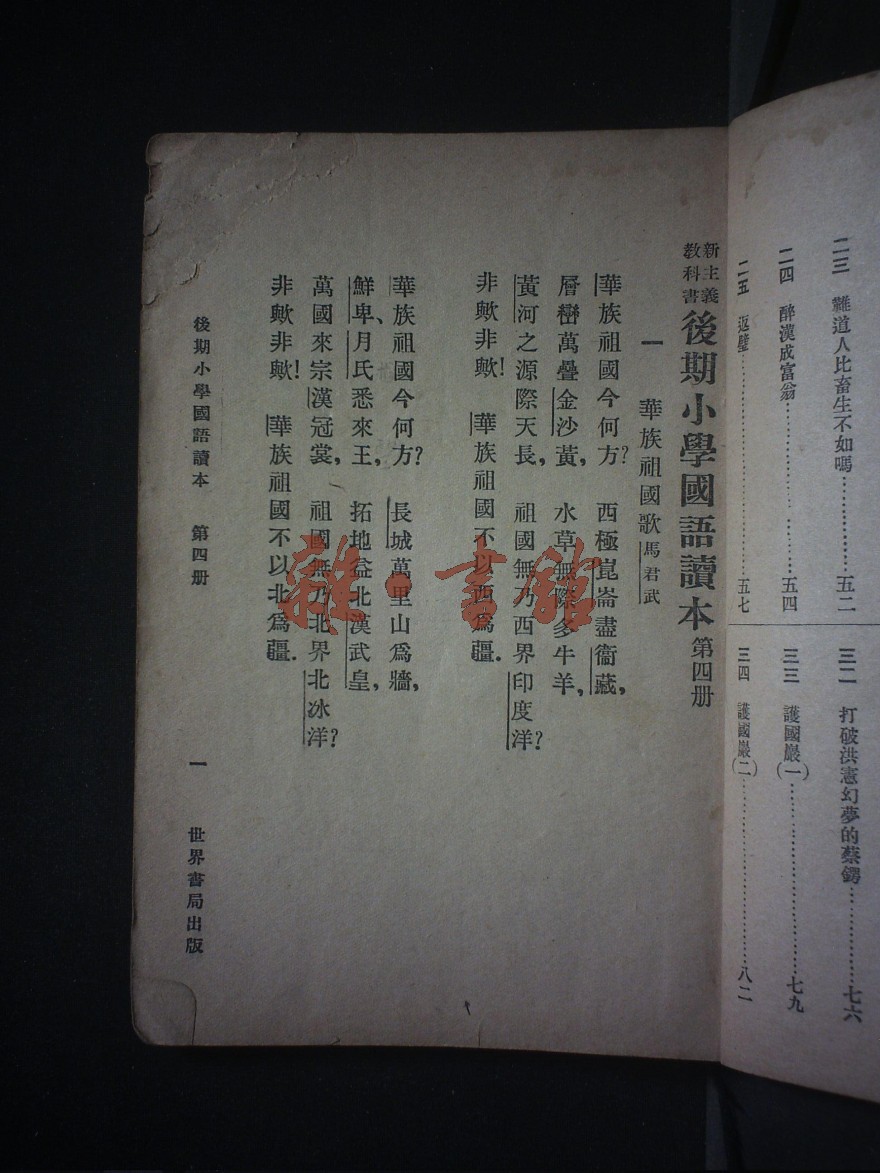 二三　難道人比畜生不如嗎……………五二
二四　醉漢成富翁……………五四
二五　返璧……………五七
三二　打破洪憲幻夢的蔡鍔……………七六
三三　護國巖(一)……………七九
三四　護國巖(二)……………八二
新主義教科書 後期小學國語讀本 第四册
一　華族祖國歌 馬君武
華族祖國今何方？　西極崑崙盡衞藏，
層巒萬疊金沙黃，　水草無際多牛羊，
黃河之源際天長，　祖國無乃西界印度洋？
非歟非歟！　華族祖國不以西爲疆．
華族祖國今何方？　長城萬里山爲牆，
鮮卑、月氏悉來王，　拓地益北漢武皇，
萬國來宗漢冠裳，　祖國無乃北界北冰洋？
非歟非歟！　華族祖國不以北爲疆．
後期小學國語讀本　第四册　一　世界書局出版
雜·書館